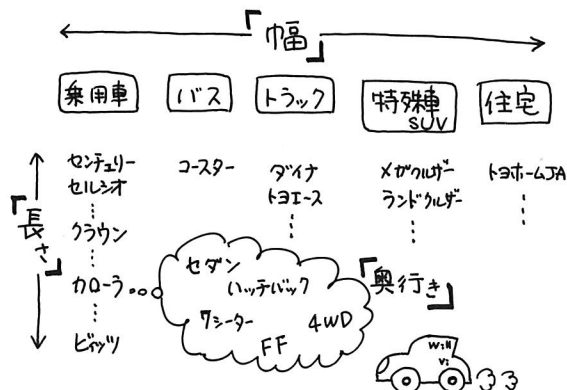 「幅」
乗用車
バス
トラック
特殊車
SUV
住宅
「長さ」
センチュリー
セルシオ
クラウン
カローラ
ビッツ
コースター
ダイナ
トヨエース
メガクルザー
ランドクルザー
トヨホームJA
「奥行き」
セダン
ハッチバック
7シーター
4WD
FF
Will
Vi